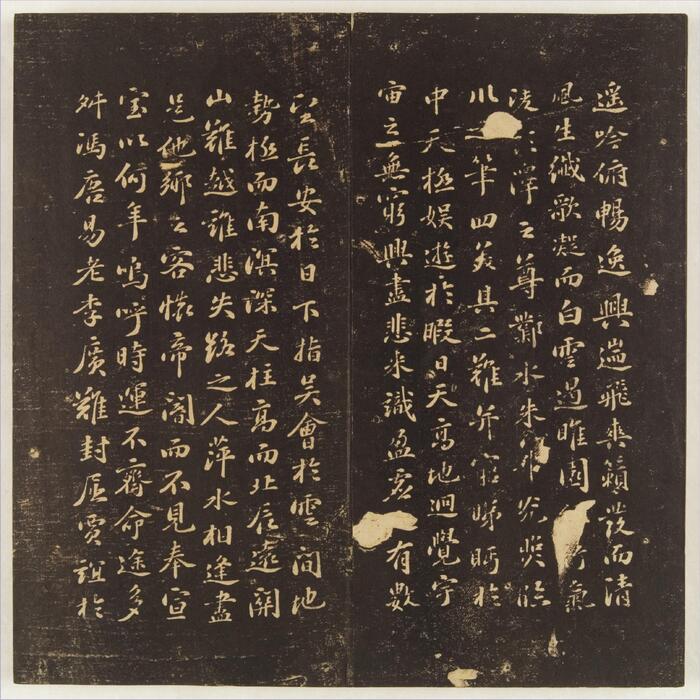 遥吟俯暢逸興遄飛爽籟發而清
風生纖歌凝而白雲遏睢園竹氣
淩澤之尊鄴水朱華光照臨
川之筆四美具二難并窮睇眄於
中天極娛遊於暇日天高地迥覺宇
宙之無窮興盡悲来識盈虛有數
望長安於日下指吴會於雲間地
勢極而南溟深天柱高而北辰遠關
山難越誰悲失路之人萍水相逢盡
是他鄉之客懷帝閽而不見奉宣
室以何年嗚呼時運不齊命途多
舛馮唐易老李廣難封屈賈誼於